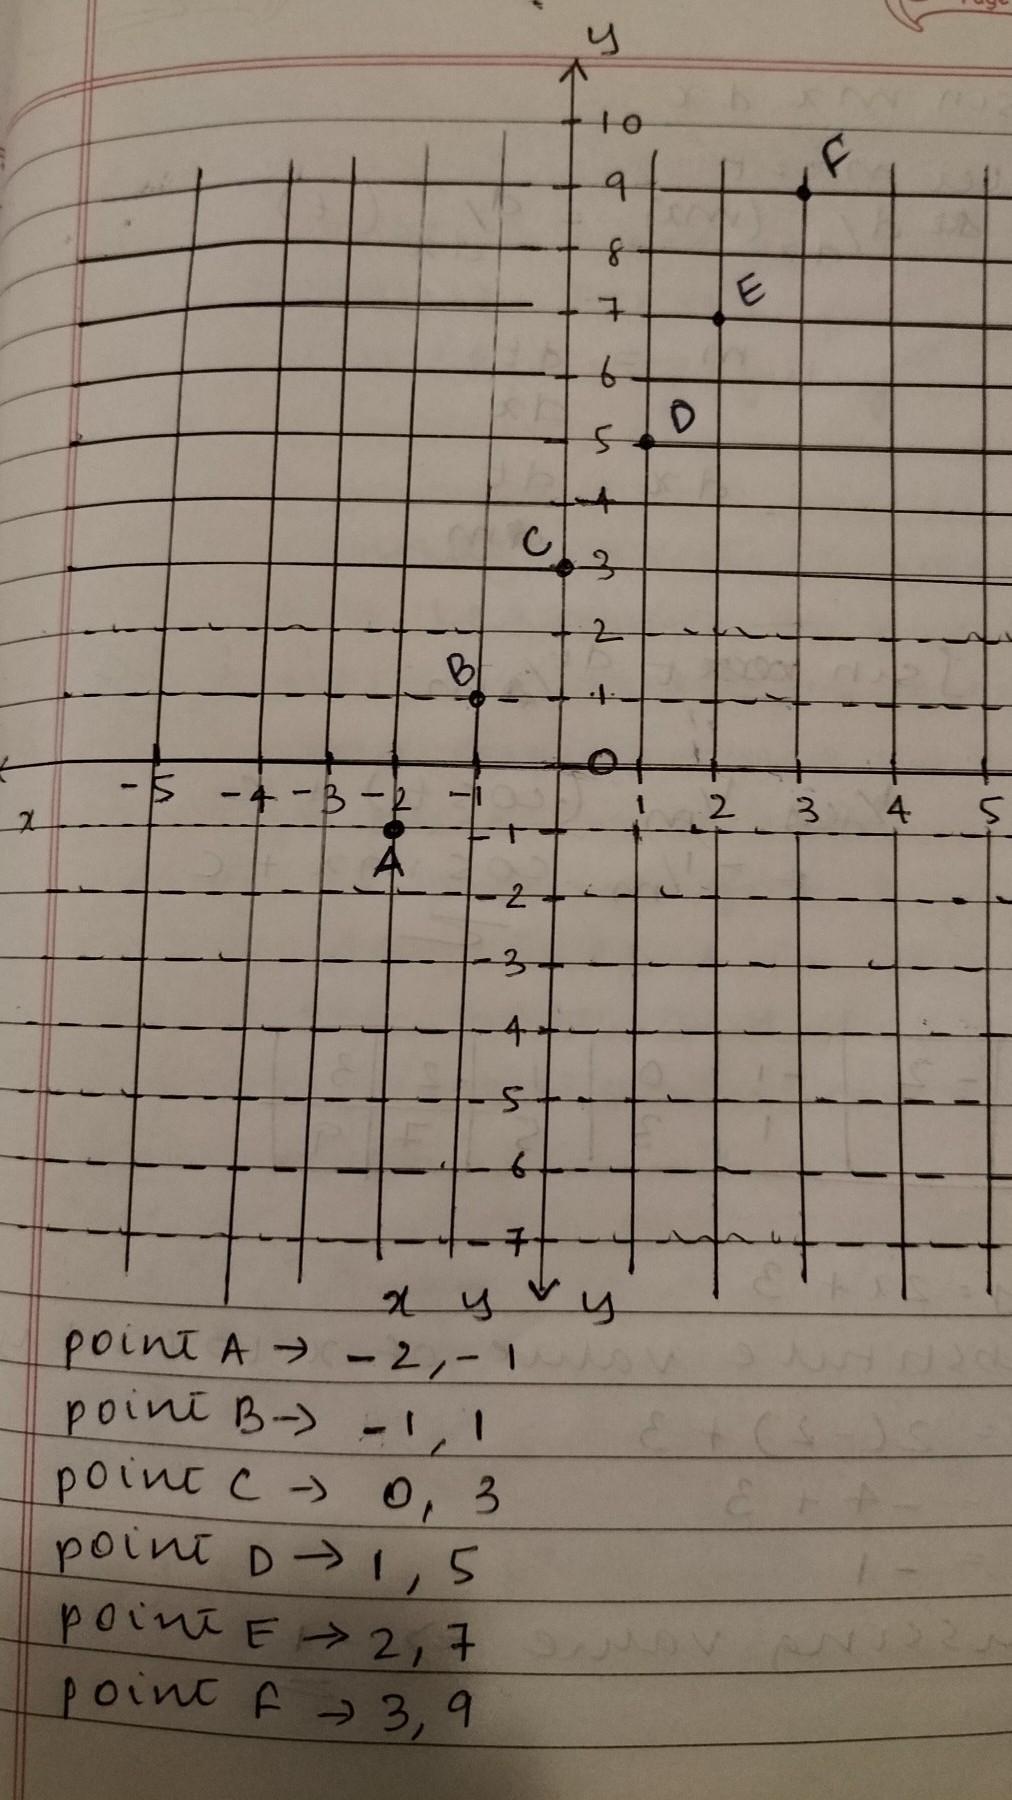 y
10
9 F
8
7 E
6
5 D
4
C 3
2
B 1
0
-5 -4 -3 -2 -1 1 2 3 4 5
x -1
A
-2
-3
-4
-5
-6
-7
x y y
point A → -2, -1
point B → -1, 1
point C → 0, 3
point D → 1, 5
point E → 2, 7
point F → 3, 9